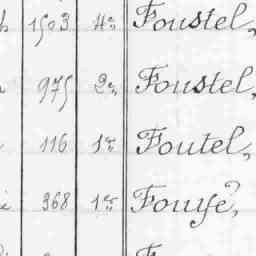 1503 4e Foustel,
975 2e Foustel,
116 1er Foutel,
368 1er Fouyé,